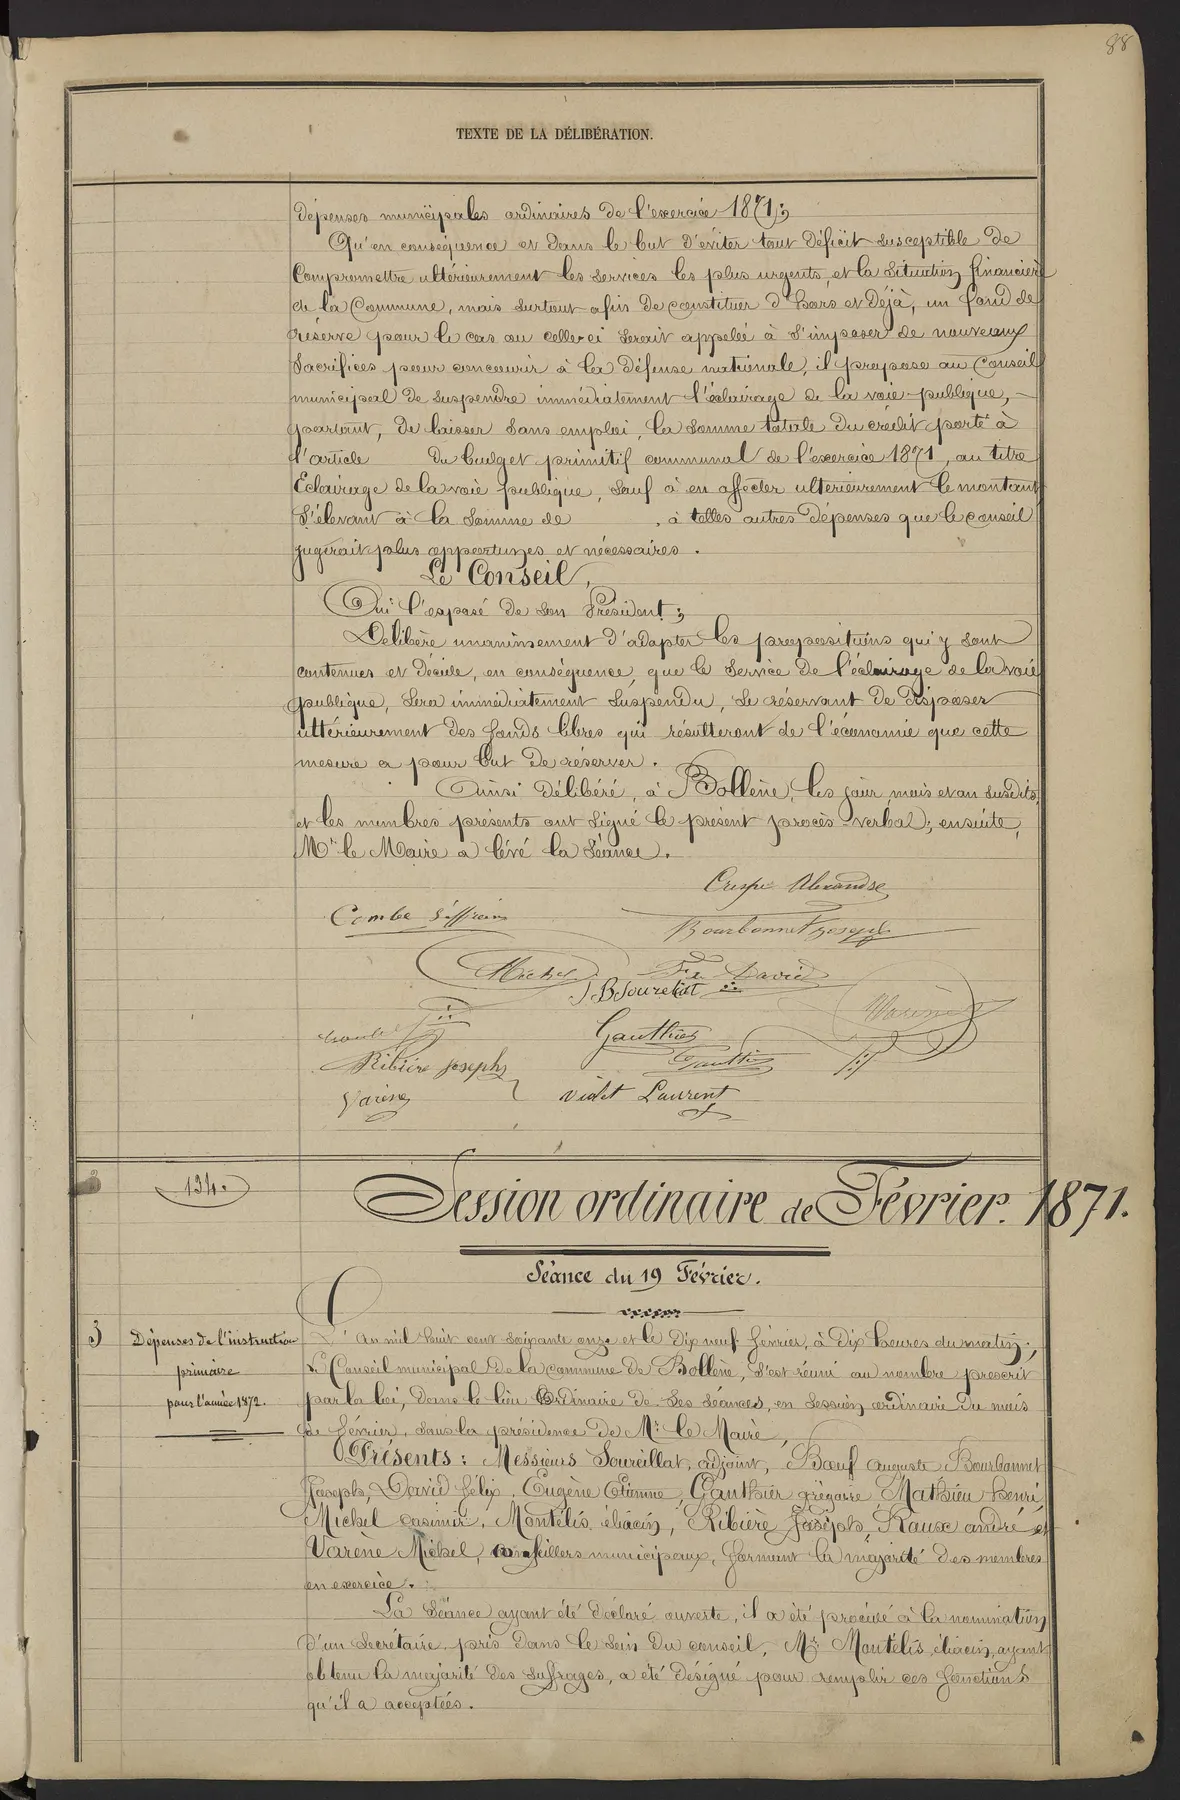 88
TEXTE DE LA DÉLIBÉRATION.
dépenses municipales ordinaires de l'exercice 1871;
Qu'en conséquence et dans le but d'éviter tout déficit susceptible de
Compromettre ultérieurement les services les plus urgents, et la situation financière
de la Commune, mais surtout afin de constituer d'hors et déjà, un fond de
réserve pour le cas ou celle-ci serait appelée à s'imposer de nouveaux
Sacrifices pour concourir à la défense nationale, il propose au Conseil
municipal de suspendre immédiatement l'éclairage de la voie publique, –
partant, de laisser sans emploi, la somme totale du crédit porté à
l'article du budget primitif communal de l'exercice 1871, au titre
Eclairage de la voie publique, sauf à en affecter ultérieurement le montant
S'élevant à la somme de , à telles autres dépenses que le conseil
jugerait plus opportunes et nécessaires.
Le Conseil,
Oui l'exposé de son Président;
Délibère unanimement d'adopter les propositions qui y sont
contenues et décide, en conséquence, que le service de l'éclairage de la voie
publique, sera immédiatement suspendu, se réservant de disposer
ultérieurement des fonds libres qui résulteront de l'économie que cette
mesure a pour but de réserver.
Ainsi délibéré, à Bollène, les jour, mois et an susdits,
et les membres présents ont signé le présent procès-verbal; ensuite,
Mr le Maire a lévé la Séance.
Crespe Alexandre
Combe Siffrein
Bourbonnet Joseph
Michel
Fx David
JB Soureillat
Varène
Gauthier
Gauthier
Ribière Joseph
Varène
Violet Laurent
134.
Session ordinaire de Février. 1871.
Séance du 19 Février.
3
Dépenses de l'instruction
primaire
pour l'année 1872.
L'an mil huit cent soixante onze et le dix neuf février, à dix heures du matin;
Le Conseil municipal de la commune de Bollène, s'est réuni au nombre prescrit
par la loi, dans le lieu Ordinaire de ses séances, en session ordinaire du mois
de février, sous la présidence de Mr le Maire,
Présents: Messieurs Soureillat, adjoint, Bœuf auguste Bourbonnet
Joseph, David félix, Eugène Etienne, Gauthier grégoire, Mathieu henri,
Michel casimir, Montélis éliacin, Ribière Joseph, Roux andré et
Varène Michel, conseillers municipaux, formant la majorité des membres
en exercice.
La Séance ayant été déclaré ouverte, il a été procédé à la nomination
d'un Secrétaire pris dans le sein du conseil, Mr Montélis, éliacin, ayant
obtenu la majorité des suffrages, a été désigné pour remplir ces fonctions
qu'il a acceptées.